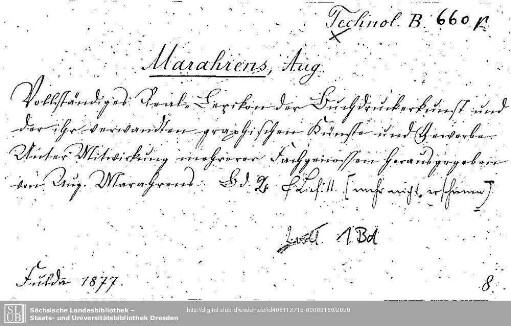 Technol. B. 660 r
Marahrens, Aug.
Vollständiges Real-Lexikon der Buchdruckerkunst und
der ihr verwandten graphischen Künste und Gewerbe.
Unter Mitwirkung mehrerer Fachgenossen herausgegeben
von Aug. Marahrens. Bd. [mehr nicht erschienen]
1 Bd
Fulda 1877.
8.
SLUB
Sächsische Landesbibliothek –
Staats- und Universitätsbibliothek Dresden